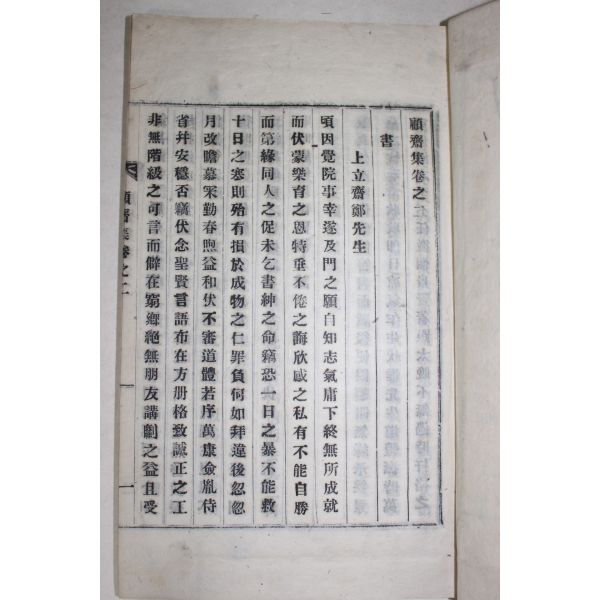 顧齋集卷之二
書
上立齋鄭先生
頃因覺院事幸遂及門之願自知志氣庸下終無所成就
而伏蒙樂育之恩特垂不倦之誨欣感之私有不能自勝
而第緣同人之促未乞書紳之命竊恐一日之暴不能救
十日之寒則殆有損於成物之仁罪負何如拜違後忽忽
月改瞻慕冞勤春煦益和伏不審道體若序萬康僉胤侍
省幷安穩否竊伏念聖賢言語布在方册格致誠正之工
非無階級之可言而僻在窮鄕絶無朋友講劘之益且受
顧齋集卷之二
一